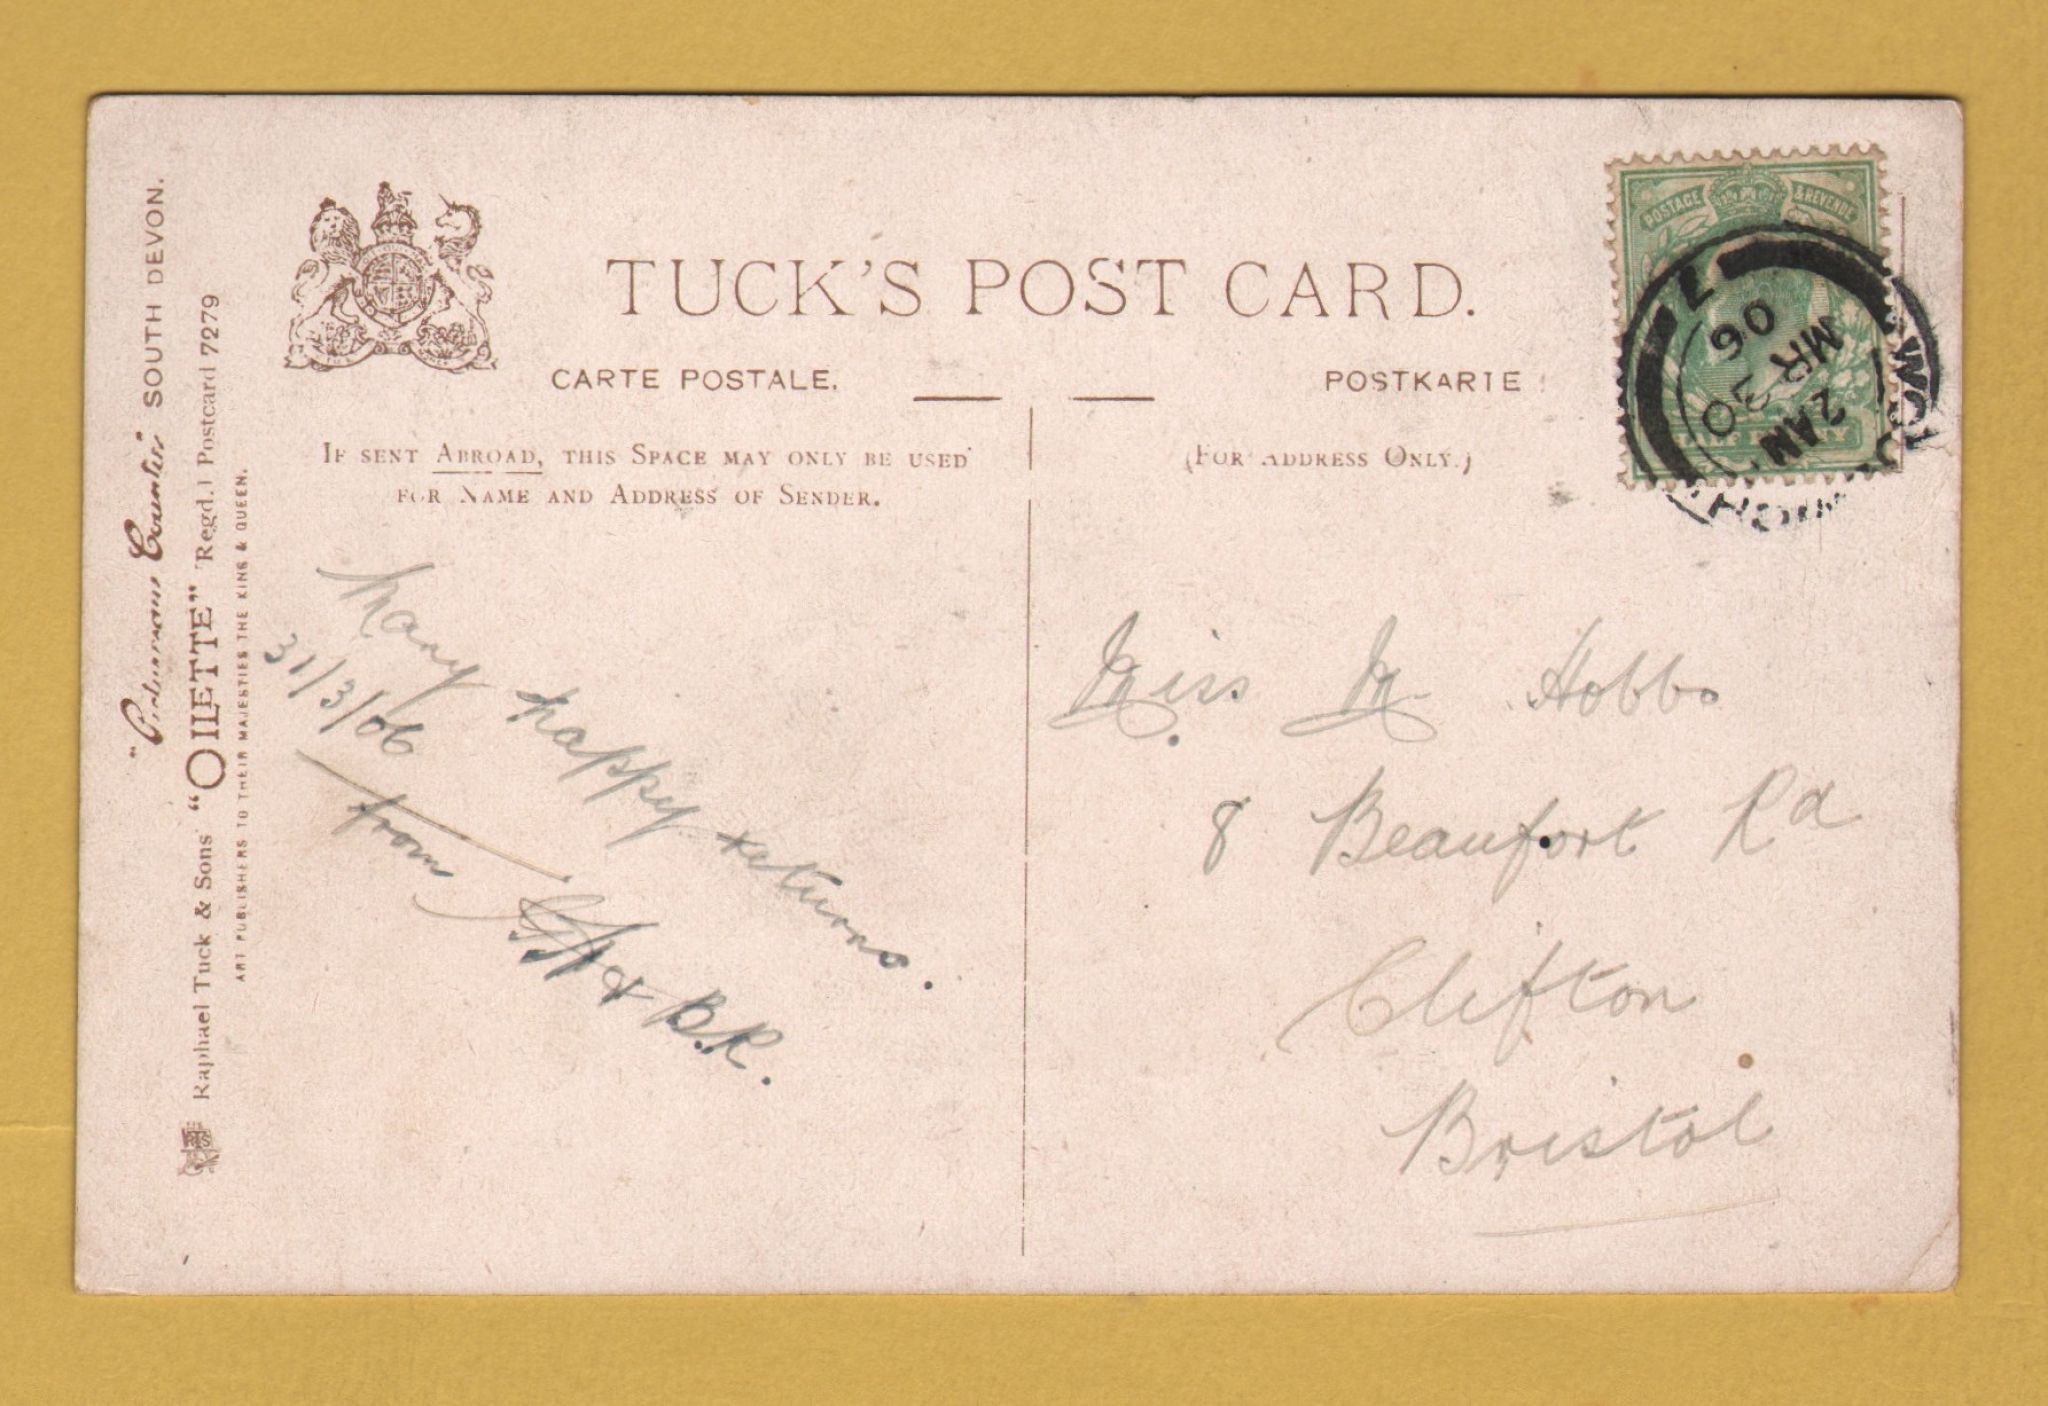 "Picturesque Counties" SOUTH DEVON.
Raphael Tuck & Sons' "OILETTE" [Regd.] Postcard 7279
ART PUBLISHERS TO THEIR MAJESTIES THE KING & QUEEN.
TUCK'S POST CARD.
CARTE POSTALE.
POSTKARTE
IF SENT ABROAD, THIS SPACE MAY ONLY BE USED
FOR NAME AND ADDRESS OF SENDER.
(FOR ADDRESS ONLY.)
POSTAGE & REVENUE
HALF PENNY
7
2 AM
MR 30
06
Many happy returns.
31/3/06
from
& B.R.
Miss M Hobbs
8 Beaufort Rd
Clifton
Bristol